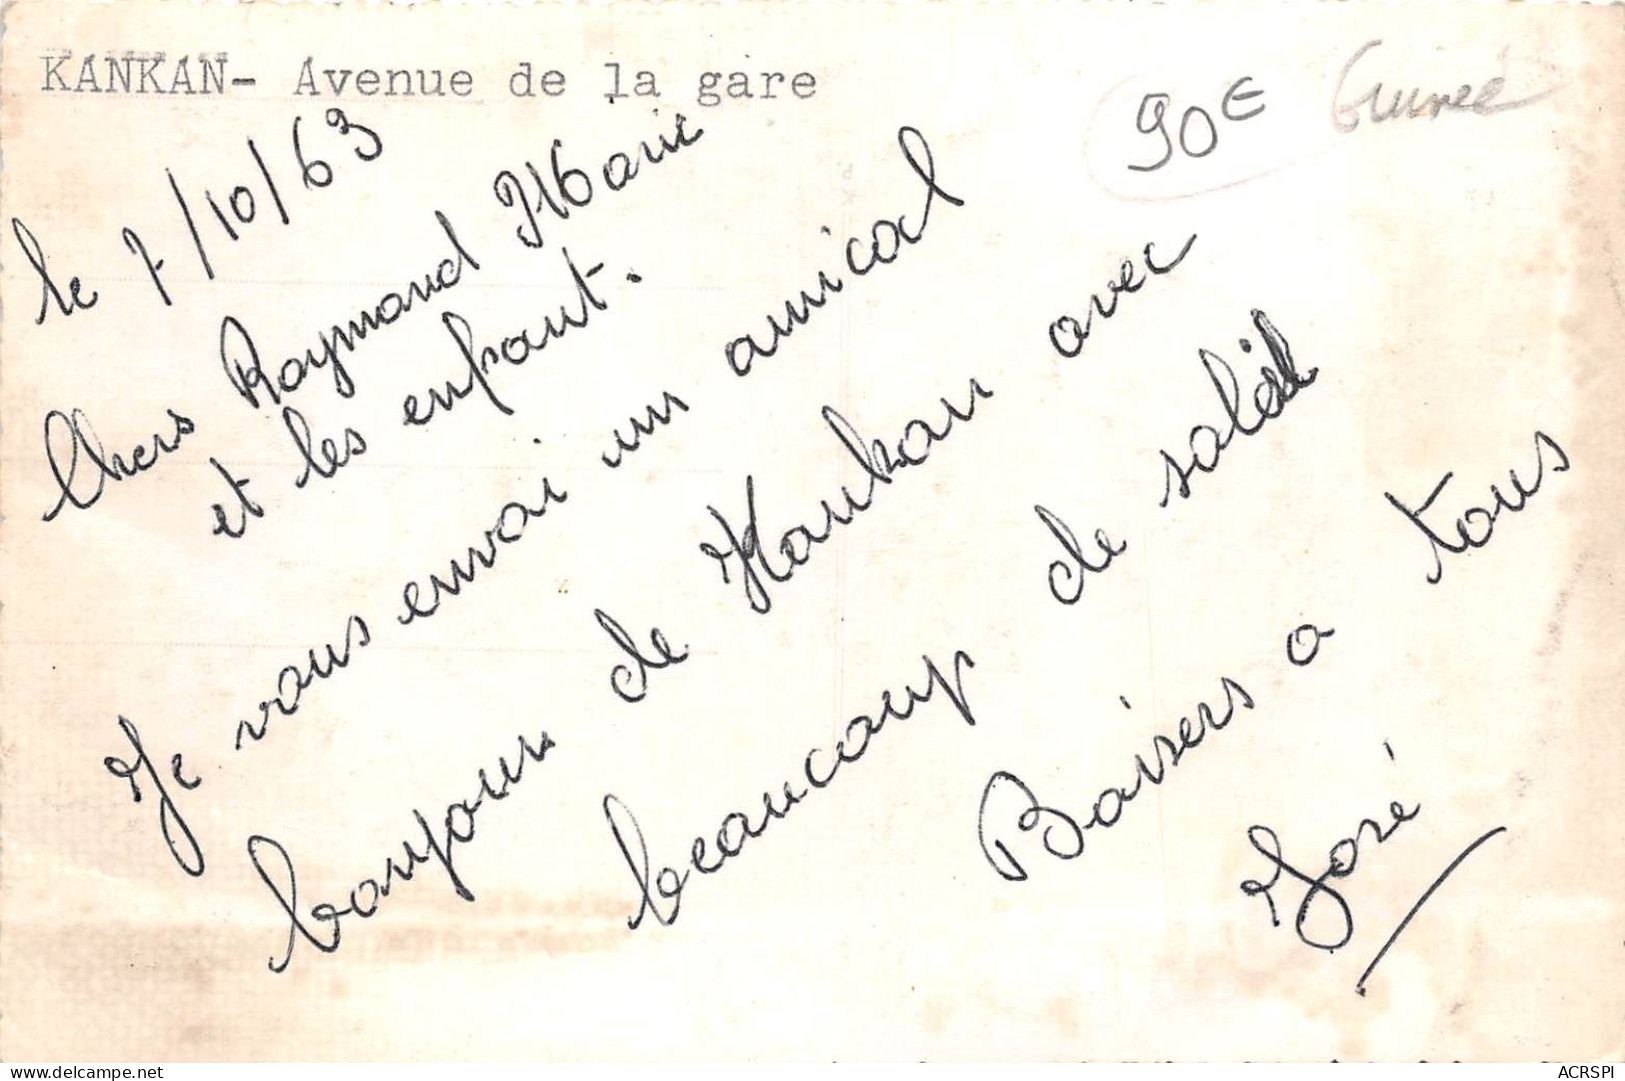 KANKAN- Avenue de la gare
90€ Guinée
le 7/10/63
Chers Raymond Marie
et les enfant.
Je vous envoi un amical
bonjour de Kankan avec
beaucoup de soleil
Baisers a tous
José
delcampe.net
ACRSPI